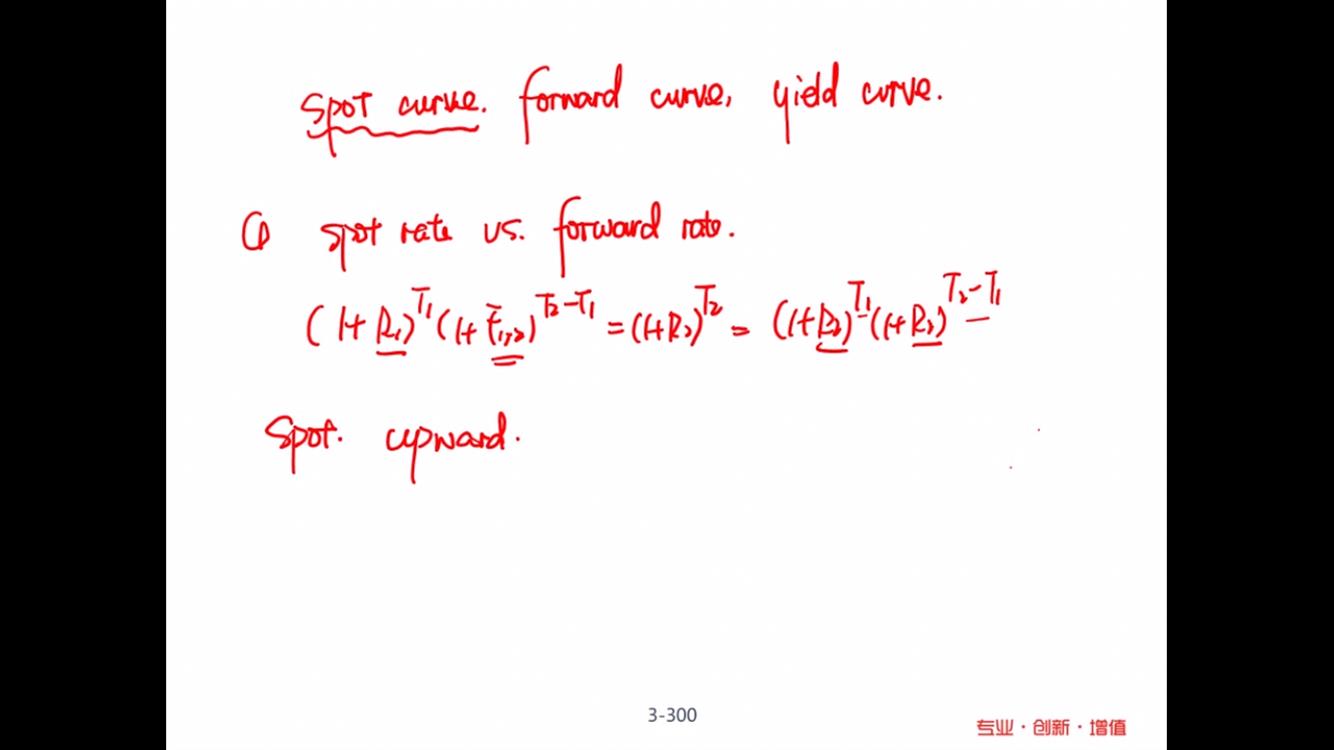 spot curve. forward curve, yield curve.
① spot rate vs. forward rate.
(1+R₁)^T₁ (1+F₁,₂)^T₂-T₁ = (1+R₂)^T₂ = (1+R₂)^T₁ (1+R₂)^T₂-T₁
Spot. upward.
3-300
专业·创新·增值